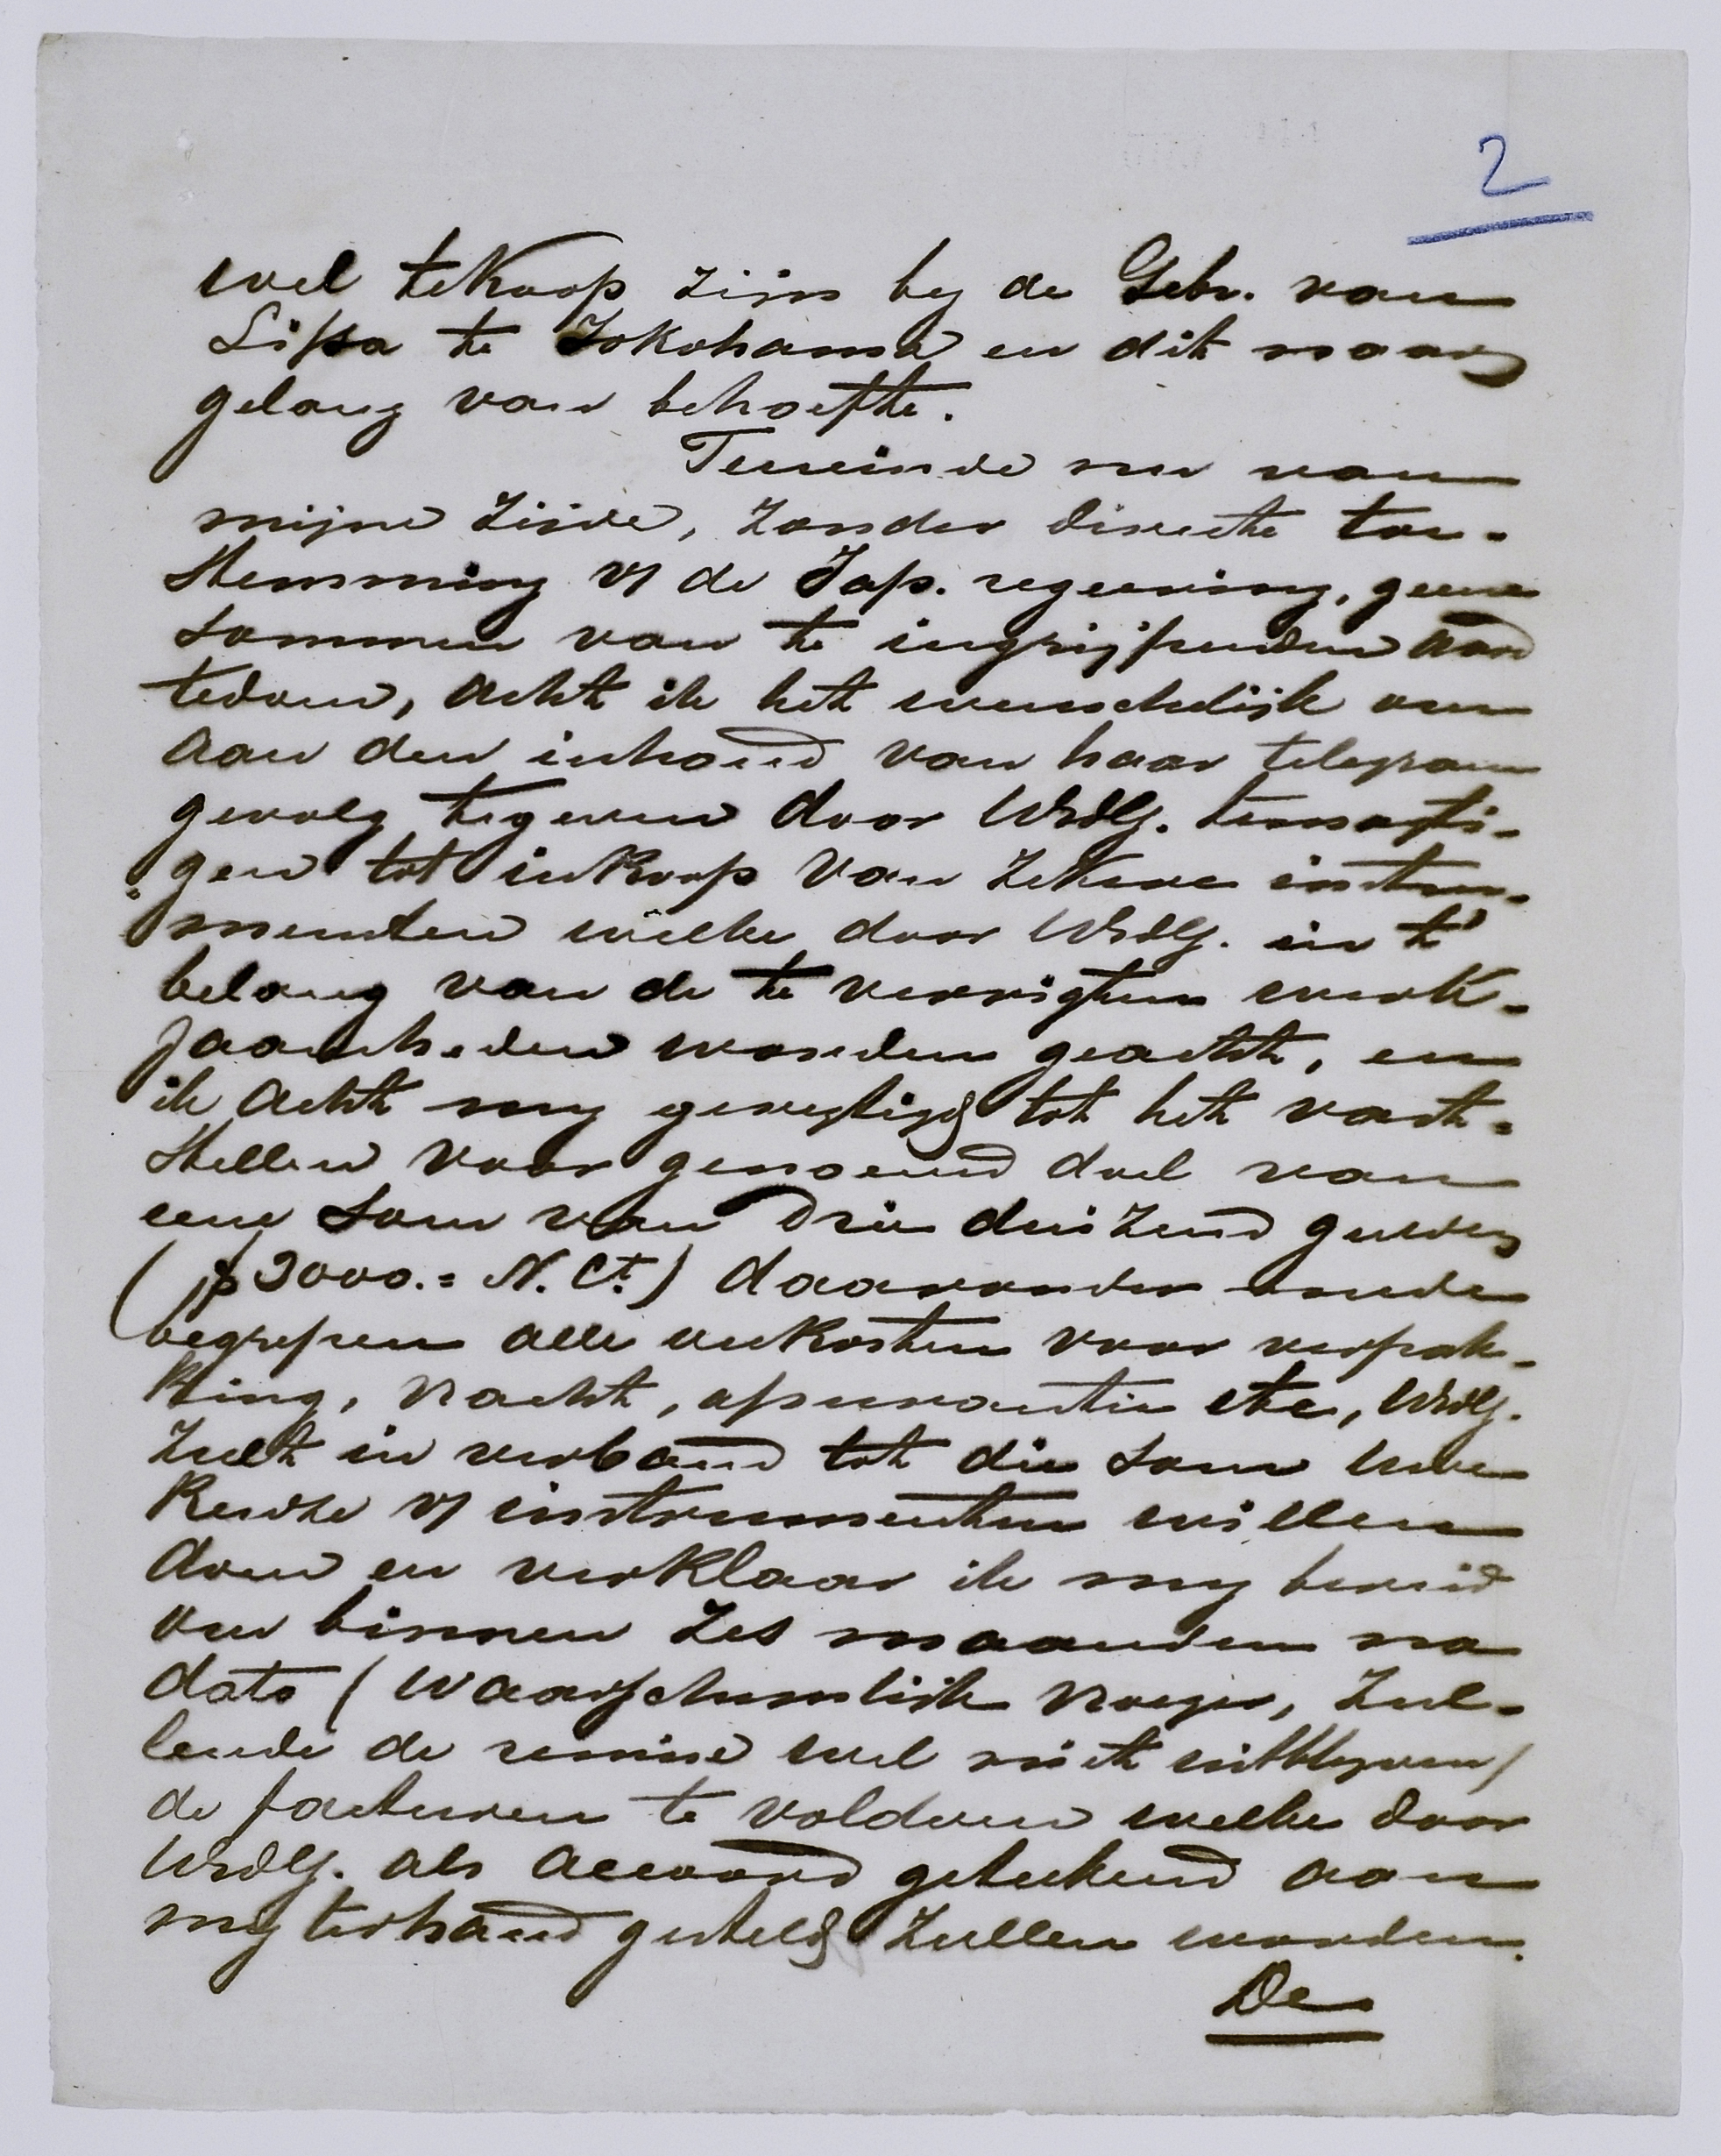 2
wel te Koop zijn by de Gebr. van
Lissa te Jokohama en dit naar
gelang van behoefte.
Teneinde nu van
mijne zijde, zonder directe toe-
stemming v/ de Jap. regeering, geene
sommen van te ingrijpenden aard
tedoen, acht ik het wenschelijk om
aan den inhoud van haar telegram
gevolg tegeven door WEdlg. temagti-
gen tot inKoop van zekere instru-
menten welke door WEdlg. in 't
belang van de te verrigten werk-
zaamheden worden geacht, en
ik acht my geregtigd tot het vast-
stellen voor genoemd doel van
eene som van drie duizend gulden
(ƒ3000.= N. Ct.) daaronder mede
begrepen alle onkosten voor verpak-
king, vracht, assurantie etc, WEdlg.
zult in verband tot die som Uwe
Keuze v/ instrumenten willen
doen en verklaar ik my bereid
om binnen zes maanden na
dato (waarschunlijk vroeger, zul-
lende de remise wel niet uitblyven)
de facturen te voldoen welke door
WEdlg. als accoord geteekend aan
my terhand gesteld zullen worden.
De